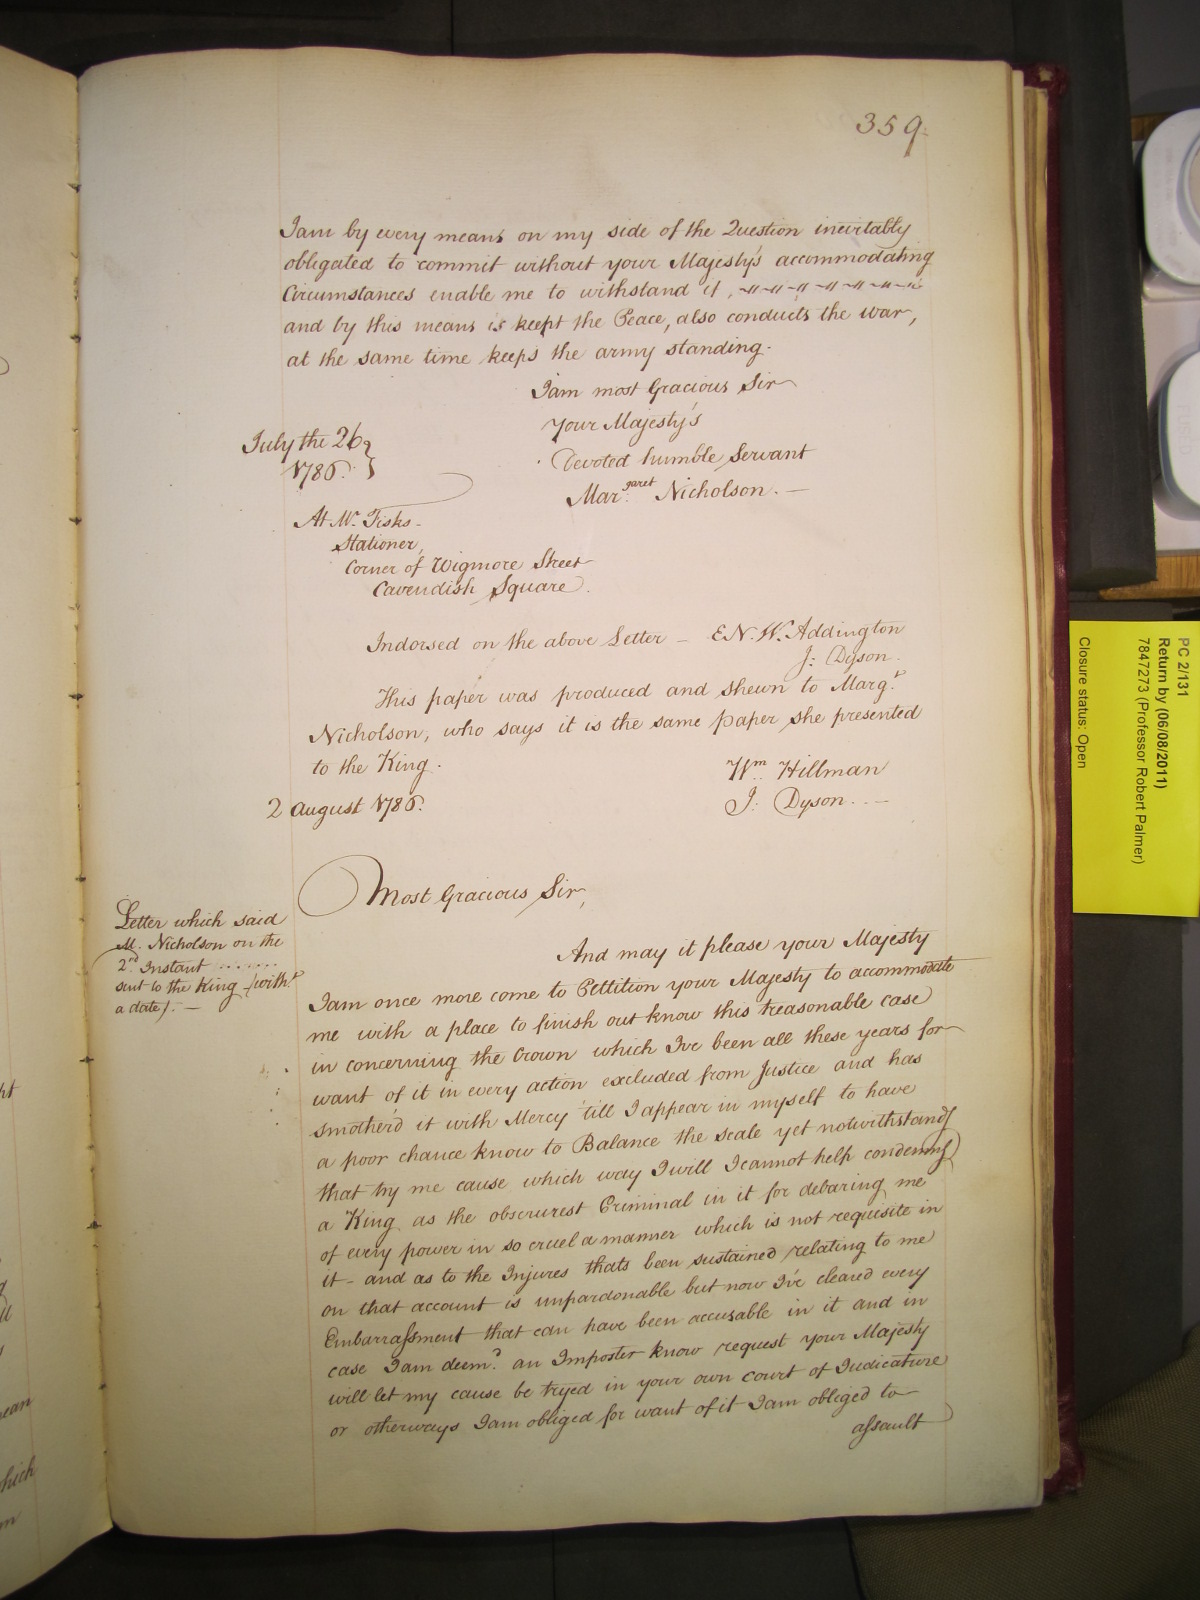 359.
I am by every means on my side of the Question inevitably
obligated to commit without your Majesty's accommodating
Circumstances enable me to withstand it,
and by this means is keept the Peace, also conducts the war,
at the same time keeps the army standing.
I am most Gracious Sir
your Majesty's
Devoted humble Servant
Margaret Nicholson. —
July the 26 }
1786. }
At Mr. Fisks -
Stationer,
Corner of Wigmore Street
Cavendish Square.
Indorsed on the above Letter – E. N. W. Addington
J: Dyson.
This paper was produced and shewn to Margt.
Nicholson, who says it is the same paper she presented
to the King.
Wm. Hillman
2 August 1786.
J: Dyson. . . —
Most Gracious Sir,
Letter which said
M. Nicholson on the
2nd. Instant ........
sent to the King (witht.
a date). —
And may it please your Majesty
I am once more come to Pettition your Majesty to accommodate
me with a place to finish out know this treasonable case
in concerning the Crown which I've been all these years for
want of it in every action excluded from Justice and has
smother'd it with Mercy 'till I appear in myself to have
a poor chance know to Balance the scale yet notwithstandg
that try me cause which way I will I cannot help condemng
a King as the obscurest Criminal in it for debaring me
of every power in so cruel a manner which is not requisite in
it – and as to the Injures thats been sustained relating to me
on that account is unpardonable but now I've cleared every
Embarrassment that can have been accusable in it and in
case I am deemd. an Imposter know request your Majesty
will let my cause be tryed in your own court of Judicature
or otherways I am obliged for want of it I am obliged to
assault
PC 2/131
Return by (06/08/2011)
7847273 (Professor Robert Palmer)
Closure status: Open